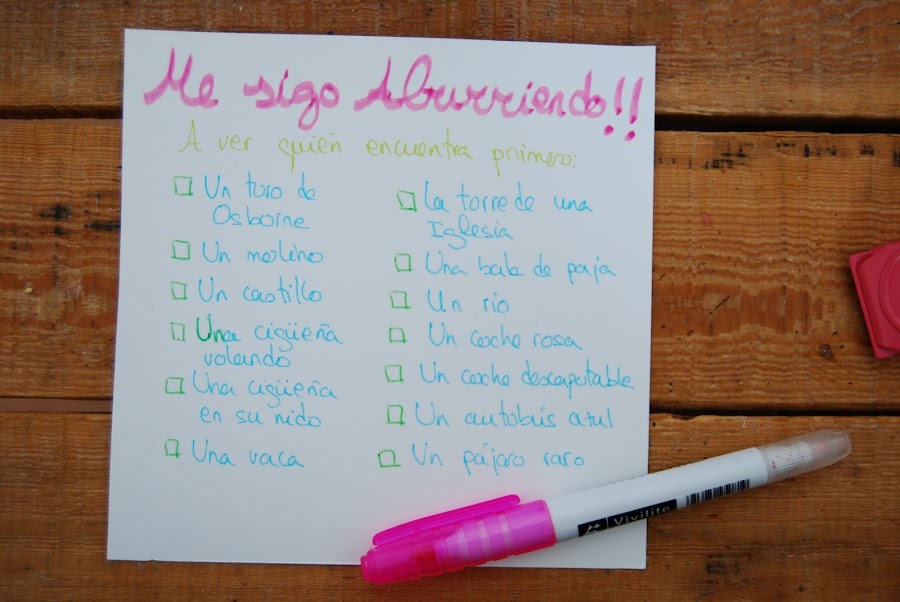 Me sigo Aburriendo!!
A ver quién encuentra primero:
Un toro de
Osborne
Un molino
Un castillo
Una cigüeña
volando
Una cigüeña
en su nido
Una vaca
La torre de una
Iglesia
Una bala de paja
Un río
Un coche rosa
Un coche descapotable
Un autobús azul
Un pájaro raro
Vivilite